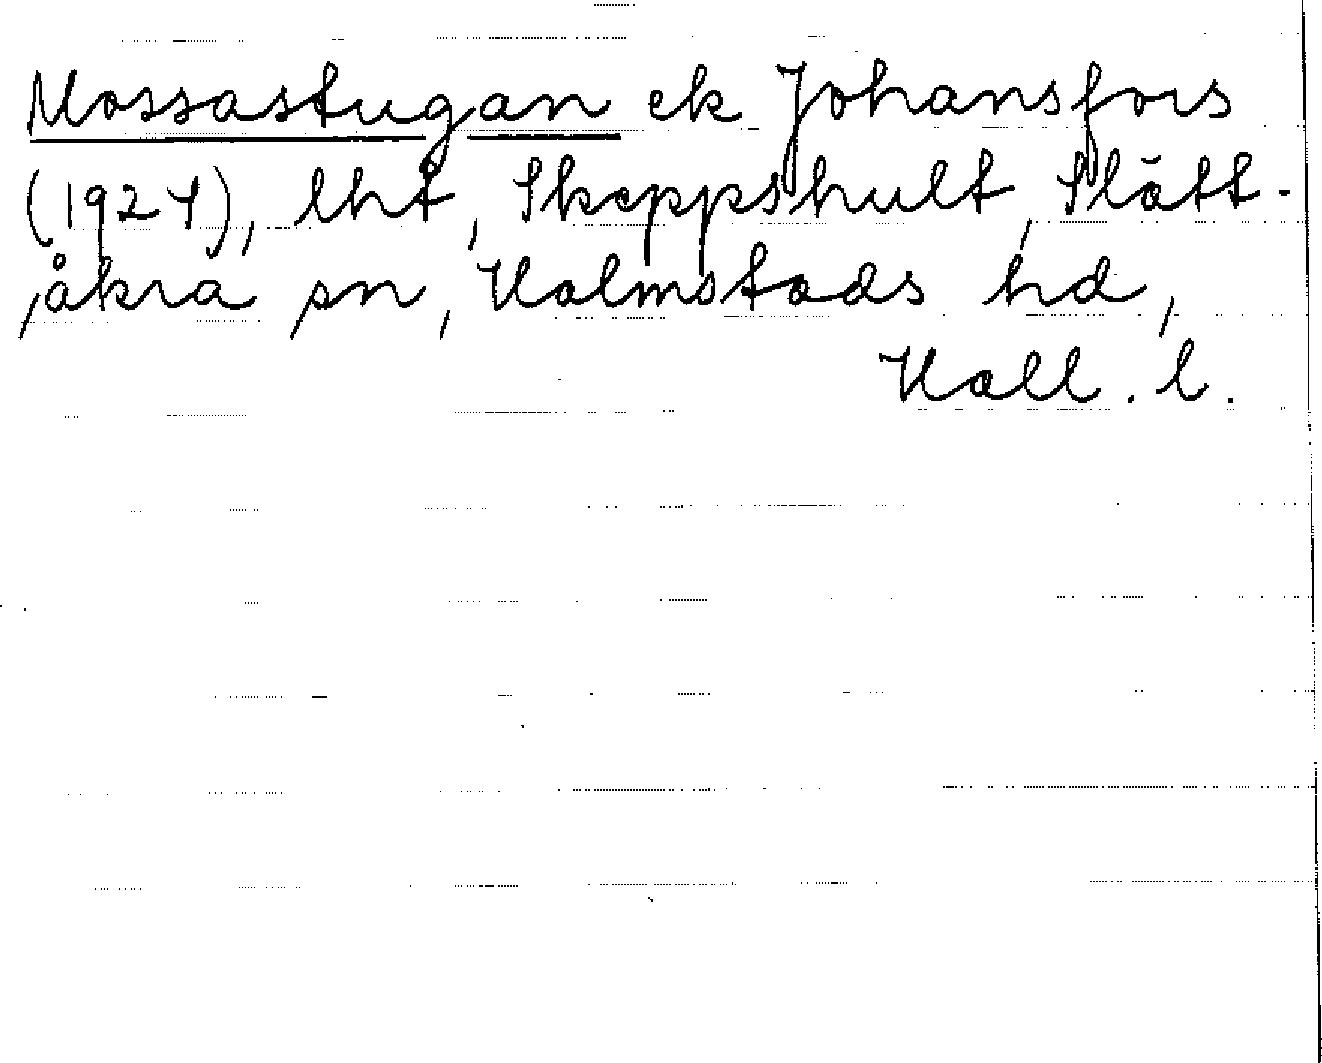 Mossastugan ek Johansfors
(1927), lht, Skeppshult, Slätt-
åkra sn, Halmstads hd,
Hall. l.